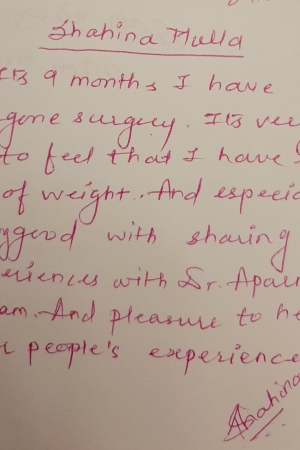 Shahina Mulla
It's 9 months I have
gone surgery. It's ve
to feel that I have
of weight. And especia
good with sharing
eriences with Dr. Apar
am. And pleasure to he
people's experience
Shahina